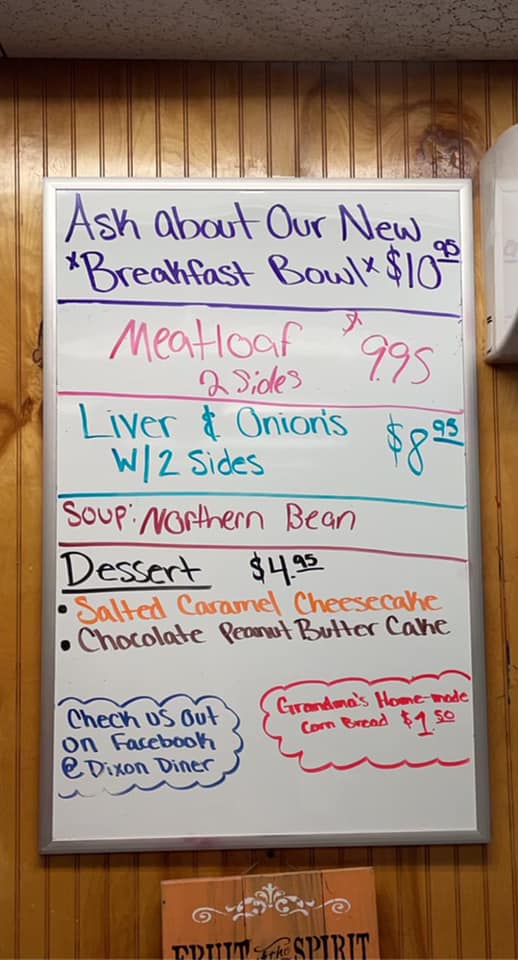 Ask about Our New
*Breakfast Bowl* $10 95
Meatloaf $9.95
2 Sides
Liver & Onion's $8 95
W/2 Sides
Soup: Northern Bean
Dessert $4.95
• Salted Caramel Cheesecake
• Chocolate Peanut Butter Cake
Check us Out
On Facebook
@ Dixon Diner
Grandma's Home-made
Corn Bread $1.50
FRUIT of the SPIRIT